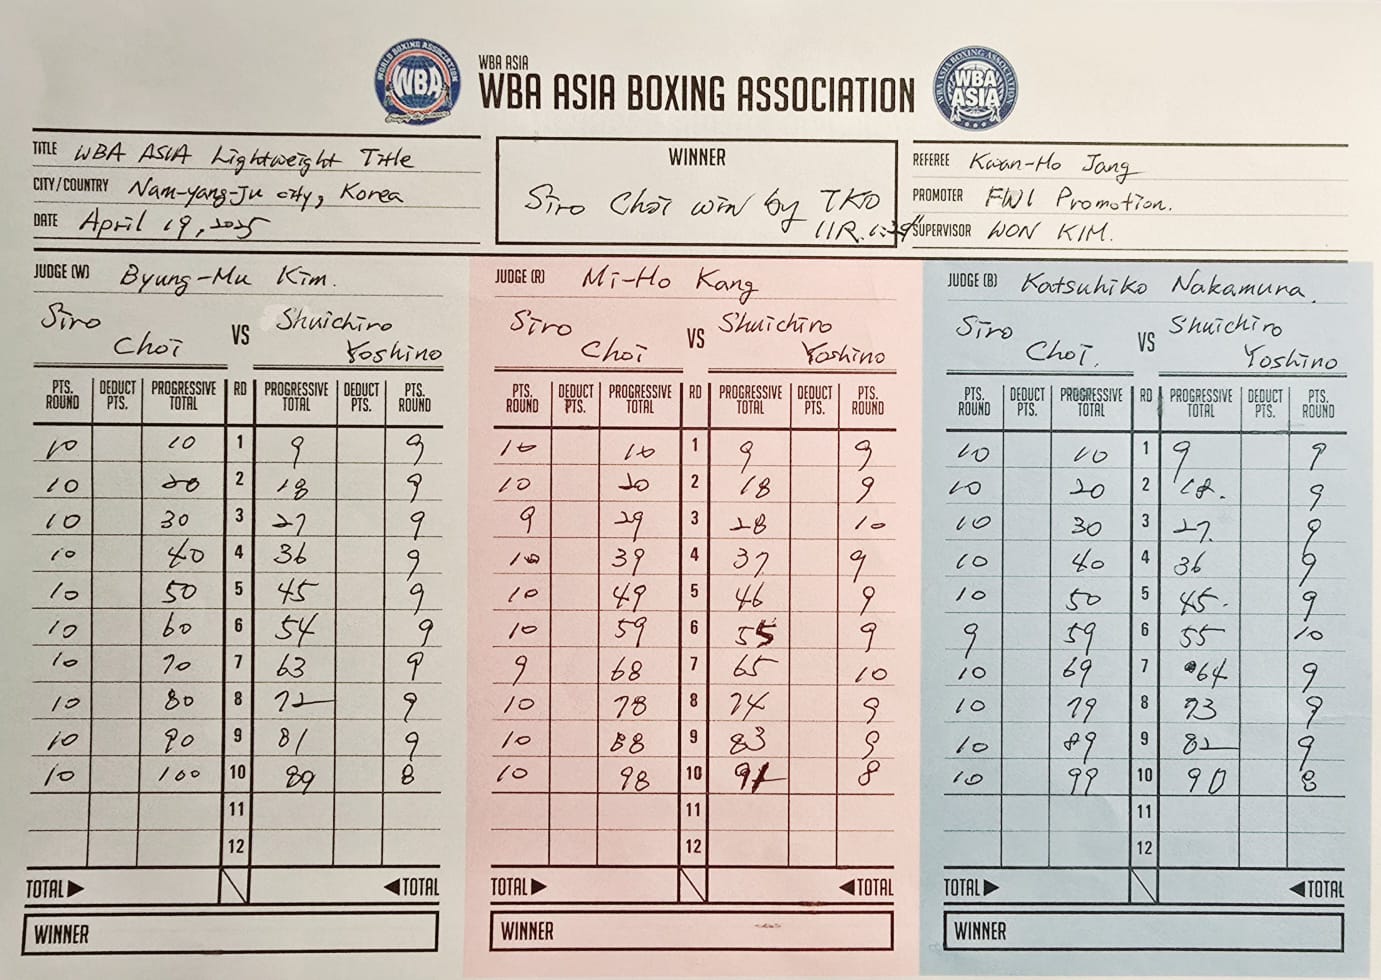 WBA ASIA
WBA ASIA BOXING ASSOCIATION
WORLD BOXING ASSOCIATION
WBA
WBA ASIA BOXING ASSOCIATION
WBA
ASIA
TITLE WBA ASIA Lightweight Title
CITY/COUNTRY Nam-yang-Ju city, Korea
DATE April 19, 2025
WINNER
Siro Choi win by TKO
11R. 1:29"
REFEREE Kwan-Ho Jang
PROMOTER FW1 Promotion.
SUPERVISOR WON KIM.
JUDGE (W) Byung-Mu Kim.
Siro Choi VS Shuichiro Yoshino
PTS. ROUND DEDUCT PTS. PROGRESSIVE TOTAL RD PROGRESSIVE TOTAL DEDUCT PTS. PTS. ROUND
10 10 1 9 9
10 20 2 18 9
10 30 3 27 9
10 40 4 36 9
10 50 5 45 9
10 60 6 54 9
10 70 7 63 9
10 80 8 72 9
10 90 9 81 9
10 100 10 89 8
11
12
TOTAL TOTAL
WINNER
JUDGE (R) Mi-Ho Kang
Siro Choi VS Shuichiro Yoshino
PTS. ROUND DEDUCT PTS. PROGRESSIVE TOTAL RD PROGRESSIVE TOTAL DEDUCT PTS. PTS. ROUND
10 10 1 9 9
10 20 2 18 9
9 29 3 28 10
10 39 4 37 9
10 49 5 46 9
10 59 6 55 9
9 68 7 65 10
10 78 8 74 9
10 88 9 83 9
10 98 10 91 8
11
12
TOTAL TOTAL
WINNER
JUDGE (B) Katsuhiko Nakamura.
Siro Choi. VS Shuichiro Yoshino
PTS. ROUND DEDUCT PTS. PROGRESSIVE TOTAL RD PROGRESSIVE TOTAL DEDUCT PTS. PTS. ROUND
10 10 1 9 9
10 20 2 18. 9
10 30 3 27. 9
10 40 4 36 9
10 50 5 45. 9
9 59 6 55 10
10 69 7 64 9
10 79 8 73 9
10 89 9 82 9
10 99 10 90 8
11
12
TOTAL TOTAL
WINNER